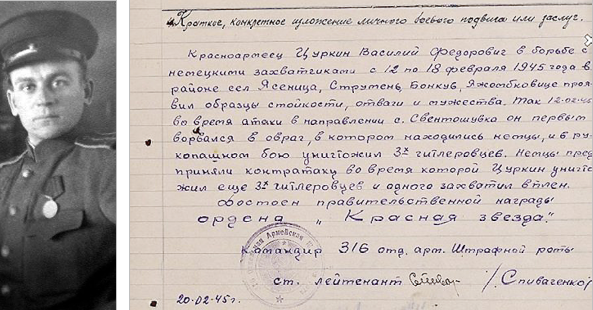 Краткое, конкретное изложение личного боевого подвига или заслуг.
Красноармеец Цуркин Василий Федорович в борьбе с
немецкими захватчиками с 12 по 18 февраля 1945 года в
районе сел Ясеница, Струмень, Бонкув, Яжомбковице проя-
вил образцы стойкости, отваги и мужества. Так 12-02-45
во время атаки в направлении с. Свентошувка он первым
ворвался в овраг, в котором находились немцы, и в ру-
копашном бою уничтожил 3х гитлеровцев. Немцы пред
приняли контратаку во время которой Цуркин уничто-
жил еще 3х гитлеровцев и одного захватил в плен.
Достоен правительственной награды
ордена „Красная звезда"
Командир 316 отд. арт. Штрафной роты
ст. лейтенант /Спиваченко/
20-02-45г.